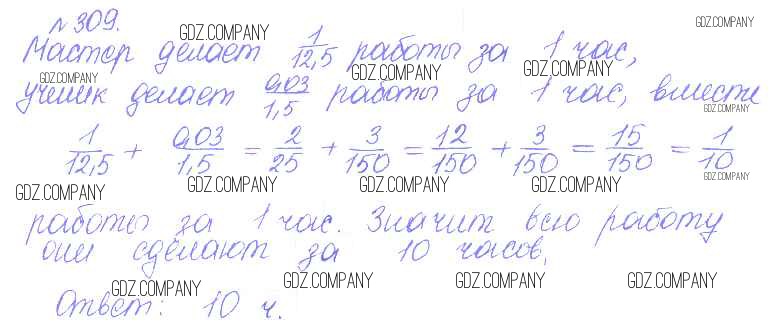 №309. GDZ.COMPANY GDZ.COMPANY
Мастер делает 1/12,5 работы за 1 час,
GDZ.COMPANY GDZ.COMPANY GDZ.COMPANY
ученик делает 0,03/1,5 работы за 1 час, вместе
GDZ.COMPANY
1/12,5 + 0,03/1,5 = 2/25 + 3/150 = 12/150 + 3/150 = 15/150 = 1/10
GDZ.COMPANY GDZ.COMPANY GDZ.COMPANY GDZ.COMPANY GDZ.COMPANY
работы за 1 час. Значит всю работу
они сделают за 10 часов.
GDZ.COMPANY GDZ.COMPANY GDZ.COMPANY GDZ.COMPANY
Ответ: 10 ч.